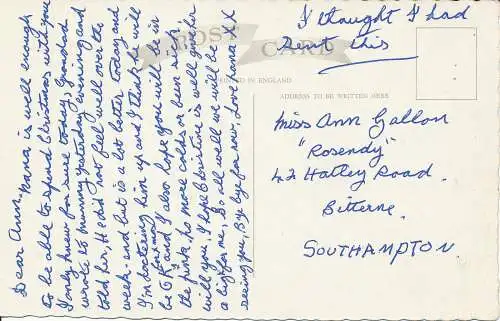 I thought I had
sent this
POST CARD
PRINTED IN ENGLAND
ADDRESS TO BE WRITTEN HERE
Miss Ann Gallon
"Rosendy"
42 Hatley Road.
Bitterne.
SOUTHAMPTON
Dear Ann,
Nana is well enough
to be able to spend Christmas with you
I only knew for sure today, Grandad
wrote to Mummy yesterday evening and
told her, He did not feel well over the
week-end but is a lot better today and
I'm doctoring him up and I think he will
be O K and I also hope you will be in
for Xmas
the pink, no more colds or been sick,
will you. I hope Christine is well, give her
a big for me, So all well we will be
seeing you, Bye bye for now, Love Nana XX